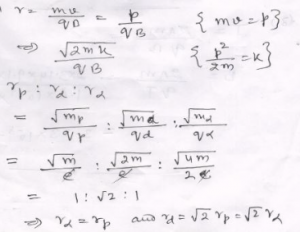 r = mv/qB = p/qB {mv = p}
⇒ √2mk/qB {p²/2m = k}
rp : rd : rα
= √mp/qp : √md/qd : √mα/qα
= √m/e : √2m/e : √4m/2e
= 1 : √2 : 1
⇒ rα = rp and rd = √2 rp = √2 rα